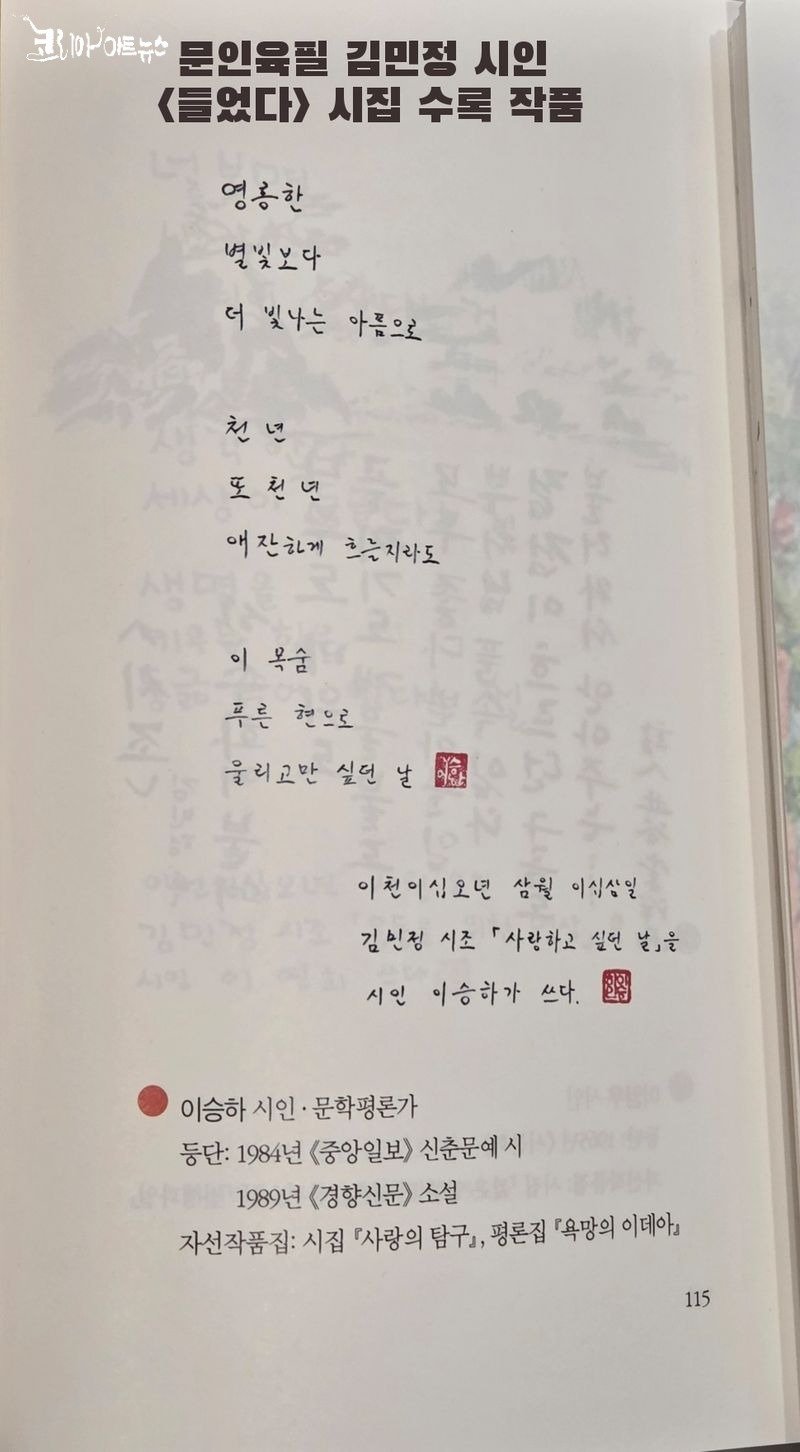 코리아아트뉴스
문인육필 김민정 시인
〈들었다〉 시집 수록 작품
영롱한
별빛보다
더 빛나는 아픔으로
천 년
또 천 년
애잔하게 흐를지라도
이 목숨
푸른 현으로
울리고만 싶던 날
이승하
이천이십오년 삼월 이십삼일
김민정 시조 「사랑하고 싶던 날」을
시인 이승하가 쓰다.
이승하 시인·문학평론가
등단: 1984년 《중앙일보》 신춘문예 시
1989년 《경향신문》 소설
자선작품집: 시집 『사랑의 탐구』, 평론집 『욕망의 이데아』
115